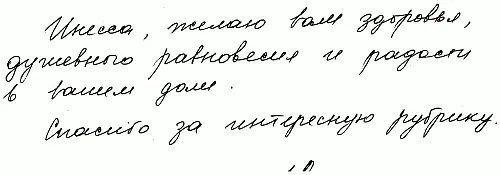 Инесса, желаю вам здоровья,
душевного равновесия и радости
в вашем доме.
Спасибо за интересную рубрику.